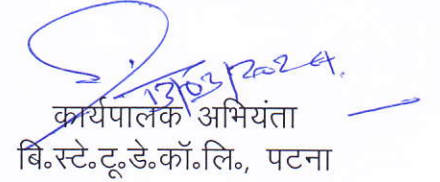 13/03/2024.
कार्यपालक अभियंता
बि॰स्टे॰टू॰डे॰कॉ॰लि॰, पटना